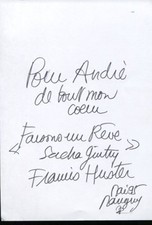 Pour André
de tout mon
coeur
"Faisons un Rêve"
Sacha Guitry
Francis Huster